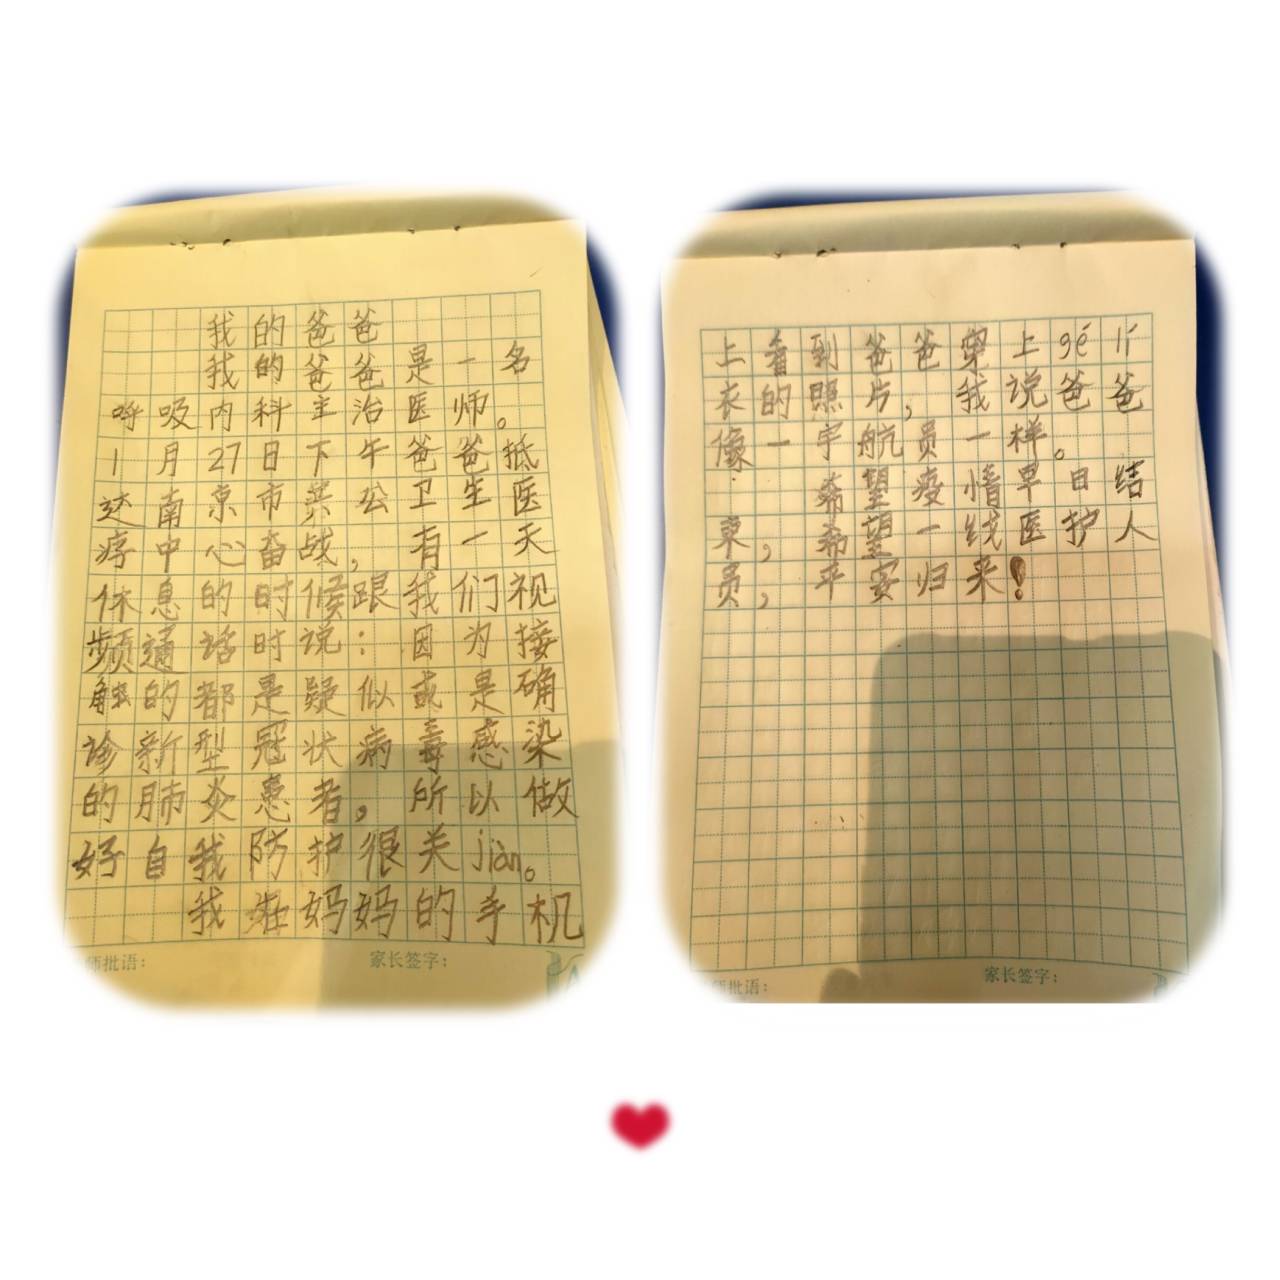 我的爸爸
我的爸爸是一名
呼吸内科主治医师。
1月27日下午爸爸抵
达南京市公共卫生医
疗中心奋战，有一天
休息的时候跟我们视
频通话时说：因为接
触的都是疑似或是确
诊新型冠状病毒感染
的肺炎患者。所以做
好自我防护很关jiàn。
我在妈妈的手机
师批语：
家长签字：
上看到爸爸穿上gé lí
衣的照片，我说爸爸
像一宇航员一样。
希望疫情早日结
束，希望一线医护人
员，平安归来！
师批语：
家长签字：